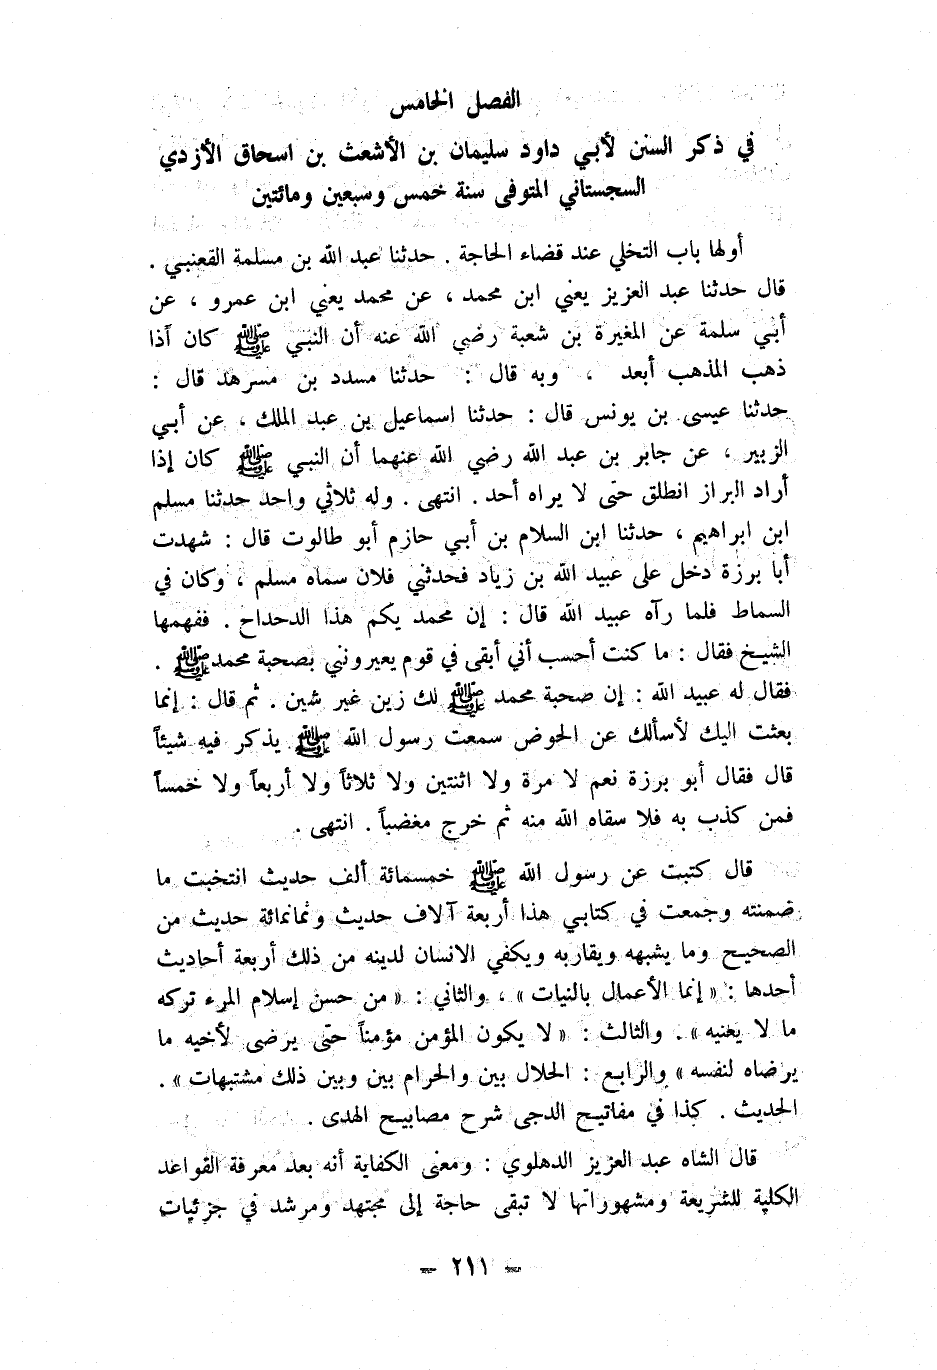 الفصل الخامس
في ذكر السنن لأبي داود سليمان بن الأشعث بن اسحاق الأزدي
السجستاني المتوفى سنة خمس وسبعين ومائتين
أولها باب التخلي عند قضاء الحاجة . حدثنا عبد الله بن مسلمة القعنبي .
قال حدثنا عبد العزيز يعني ابن محمد ، عن محمد يعني ابن عمرو ، عن
أبي سلمة عن المغيرة بن شعبة رضي الله عنه أن النبي ﷺ كان آذا
ذهب المذهب أبعد ، وبه قال : حدثنا مسدد بن مسرهد قال :
حدثنا عيسى بن يونس قال : حدثنا اسماعيل بن عبد الملك ، عن أبي
الزبير ، عن جابر بن عبد الله رضي الله عنهما أن النبي ﷺ كان إذا
أراد البراز انطلق حتى لا يراه أحد . انتهى . وله ثلاثي واحد حدثنا مسلم
ابن ابراهيم ، حدثنا ابن السلام بن أبي حازم أبو طالوت قال : شهدت
أبا برزة دخل على عبيد الله بن زياد فحدثني فلان سماه مسلم ، وكان في
السماط فلما رآه عبيد الله قال : إن محمد يكم هذا الدحداح . ففهمها
الشيخ فقال : ما كنت أحسب أني أبقى في قوم يعيرونني بصحبة محمد ﷺ .
فقال له عبيد الله : إن صحبة محمد ﷺ لك زين غير شين . ثم قال : إنما
بعثت اليك لأسألك عن الحوض سمعت رسول الله ﷺ يذكر فيه شيئاً
قال فقال أبو برزة نعم لا مرة ولا اثنتين ولا ثلاثاً ولا أربعاً ولا خمساً
فمن كذب به فلا سقاه الله منه ثم خرج مغضباً . انتهى .
قال كتبت عن رسول الله ﷺ خمسمائة ألف حديث انتخبت ما
ضمنته وجمعت في كتابي هذا أربعة آلاف حديث وثمانمائة حديث من
الصحيح وما يشبهه ويقاربه ويكفي الانسان لدينه من ذلك أربعة أحاديث
أحدها : « إنما الأعمال بالنيات » ، والثاني : « من حسن إسلام المرء تركه
ما لا يعنيه » . والثالث : « لا يكون المؤمن مؤمناً حتى يرضى لأخيه ما
يرضاه لنفسه » والرابع : الحلال بين والحرام بين وبين ذلك مشتبهات » .
الحديث . كذا في مفاتيح الدجى شرح مصابيح الهدى .
قال الشاه عبد العزيز الدهلوي : ومعنى الكفاية أنه بعد معرفة القواعد
الكلية للشريعة ومشهوراتها لا تبقى حاجة إلى مجتهد ومرشد في جزئيات
- ٢١١ -